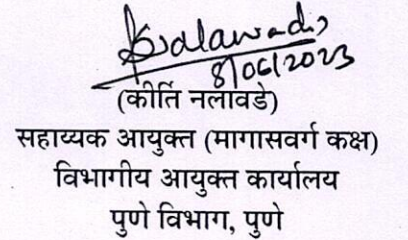 8/06/2023
(कीर्ति नलावडे)
सहाय्यक आयुक्त (मागासवर्ग कक्ष)
विभागीय आयुक्त कार्यालय
पुणे विभाग, पुणे